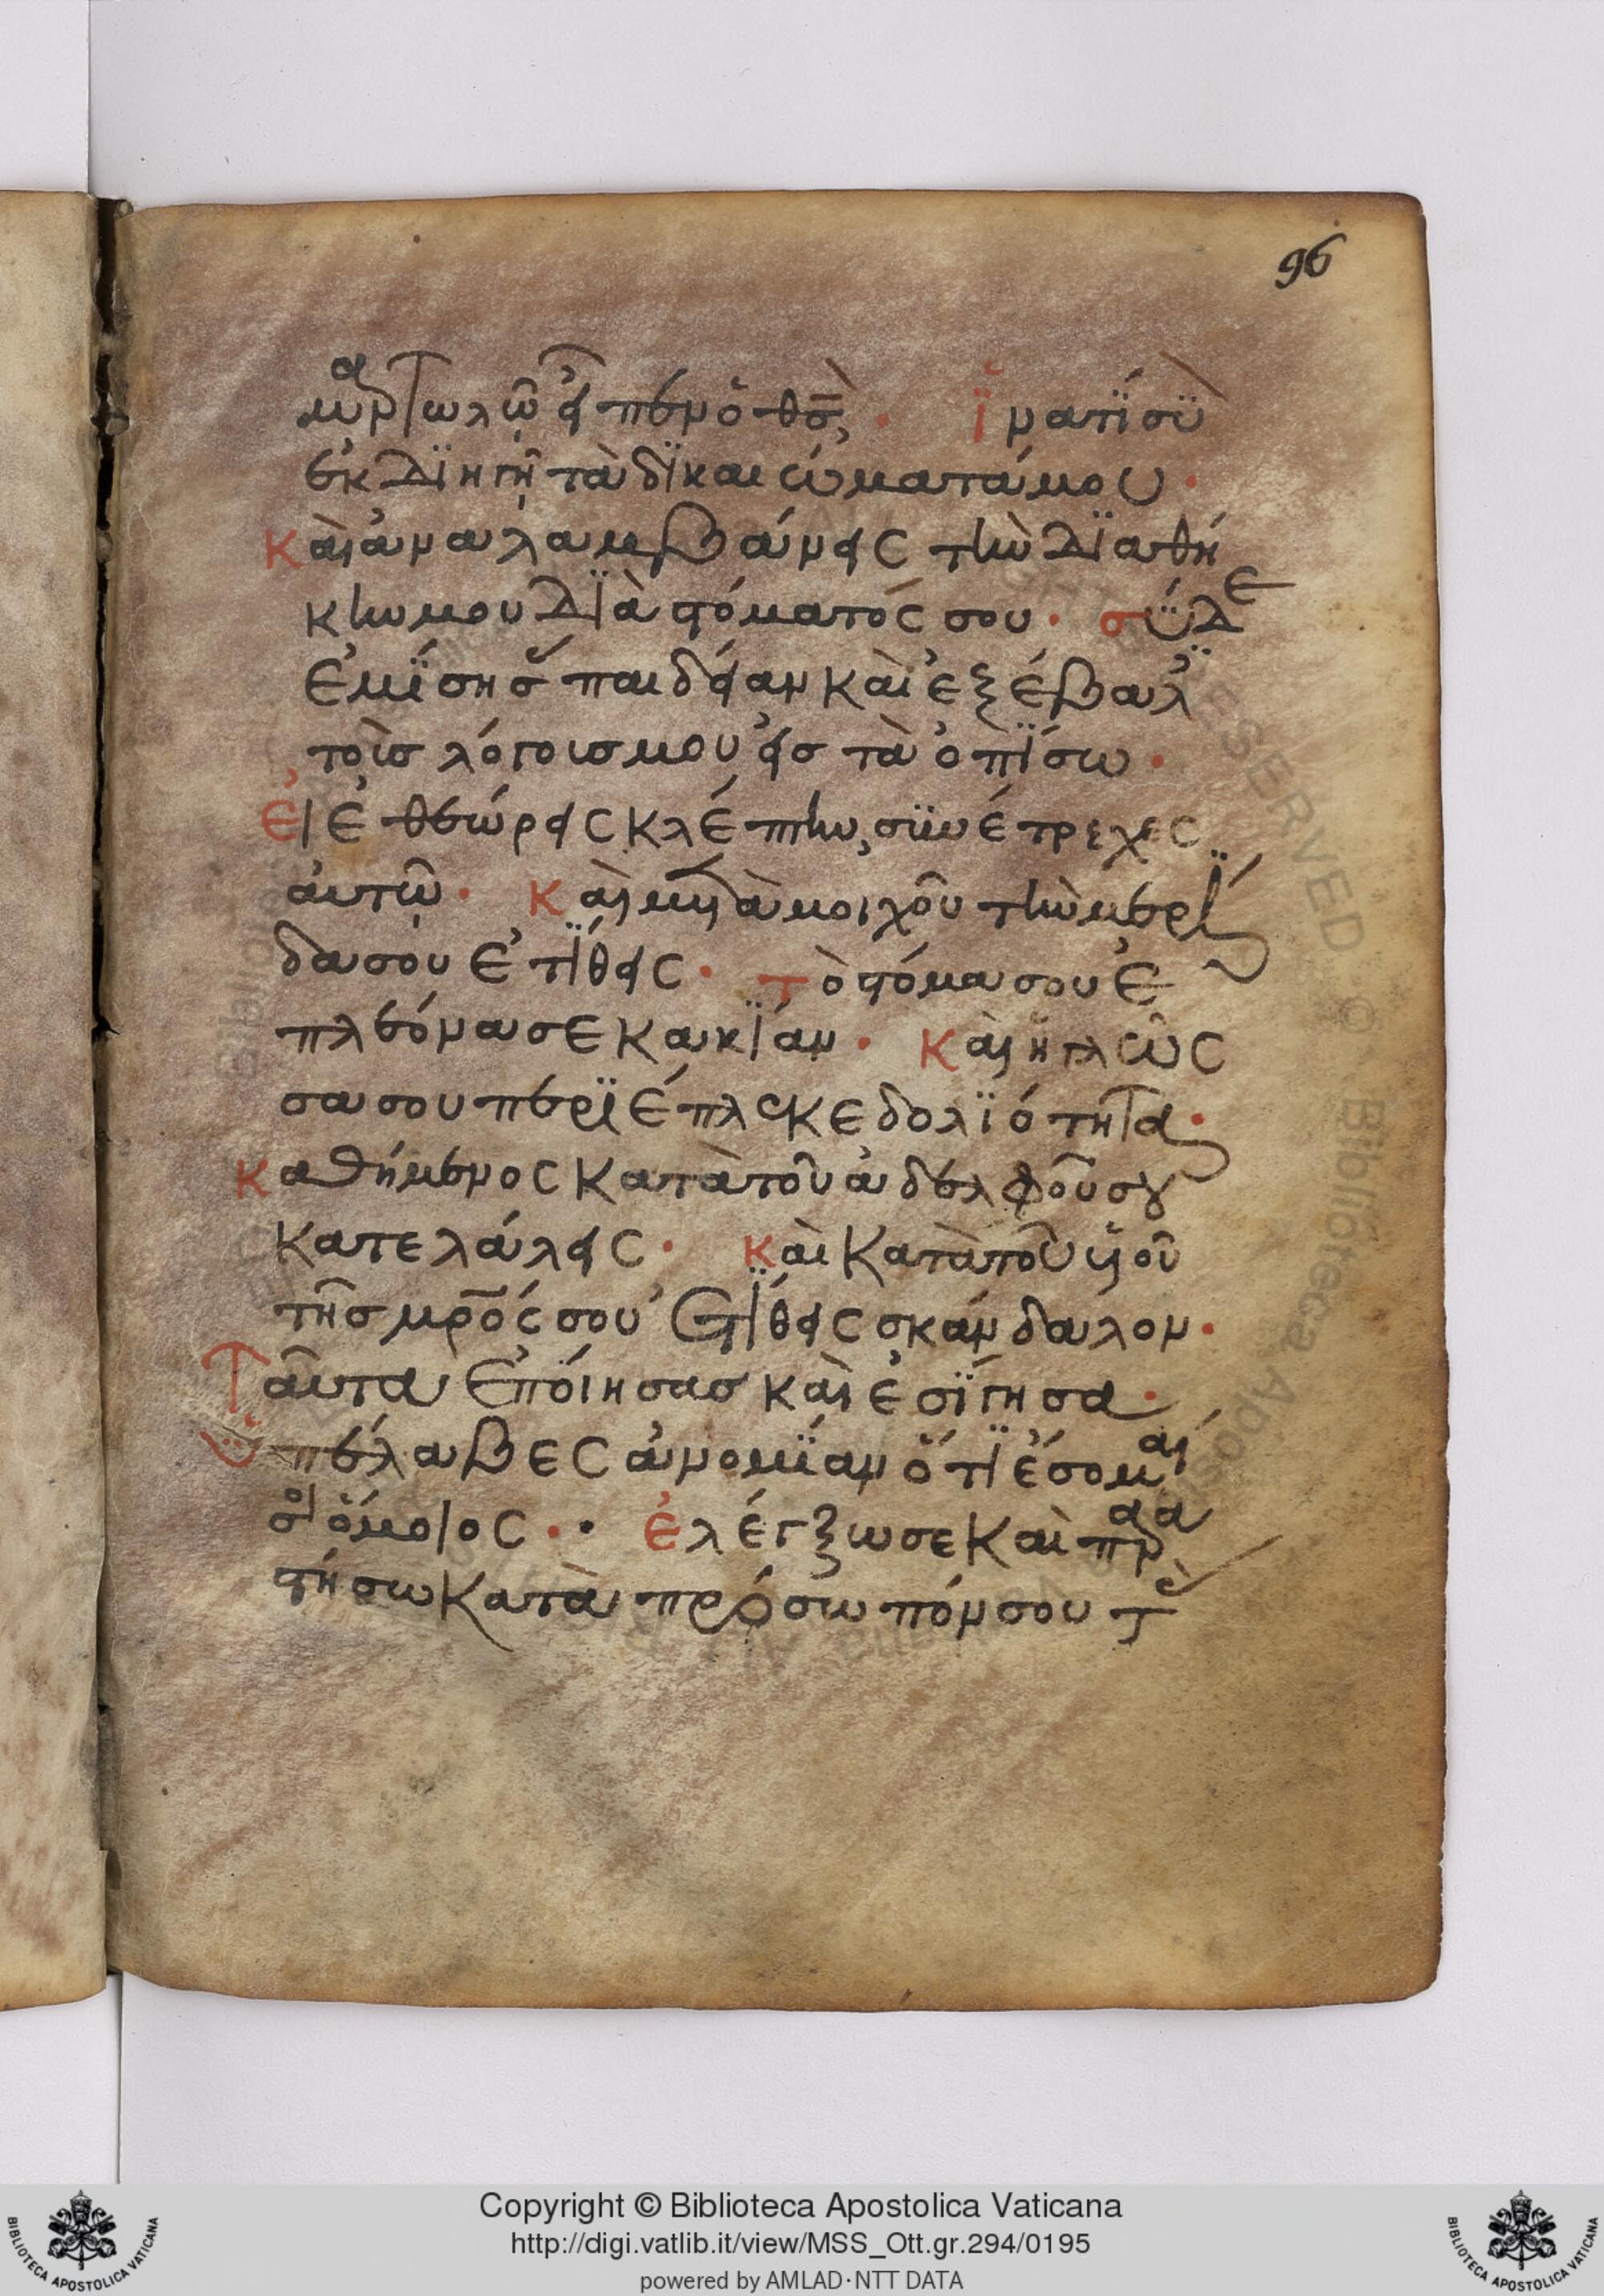 96
μαρτωλῶ εἶπεν ὁ θς̅· ἵνατί σὺ
ἐκδιηγῆ τὰ δικαιώματά μου·
Καὶ ἀναλαμβάνεις τὴν διαθή
κην μου διὰ στόματός σου· σὺ δὲ
ἐμίσησ παιδείαν καὶ ἐξέβαλ
τοῖσ λόγοισ μου εἰσ τὰ ὀπίσω·
Εἰ ἐθεώρεις κλέπτην, συνέτρεχες
αὐτῶ· Καὶ μετὰ μοιχοῦ τὴν μερί
δα σου ἐτίθεις· Τὸ στόμα σου ἐ
πλεόνασε κακίαν· Καὶ ἡ γλῶς
σα σου περιέπλεκε δολιότητα·
Καθήμενος κατὰ τοῦ ἀδελφοῦ σου
κατελάλεις· Καὶ κατὰ τοῦ υἱοῦ
τῆσ μρ̅ός σου ἐτίθεις σκάνδαλον·
Ταῦτα ἐποίησασ καὶ ἐσίγησα·
Ὑπέλαβες ἀνομίαν ὅτι ἔσομαί
σοι ὅμοιος·· Ἐλέγξω σε καὶ παρα
στήσω κατὰ πρόσωπόν σου τὰς
Copyright © Biblioteca Apostolica Vaticana
http://digi.vatlib.it/view/MSS_Ott.gr.294/0195
powered by AMLAD·NTT DATA
BIBLIOTECA APOSTOLICA VATICANA
BIBLIOTECA APOSTOLICA VATICANA